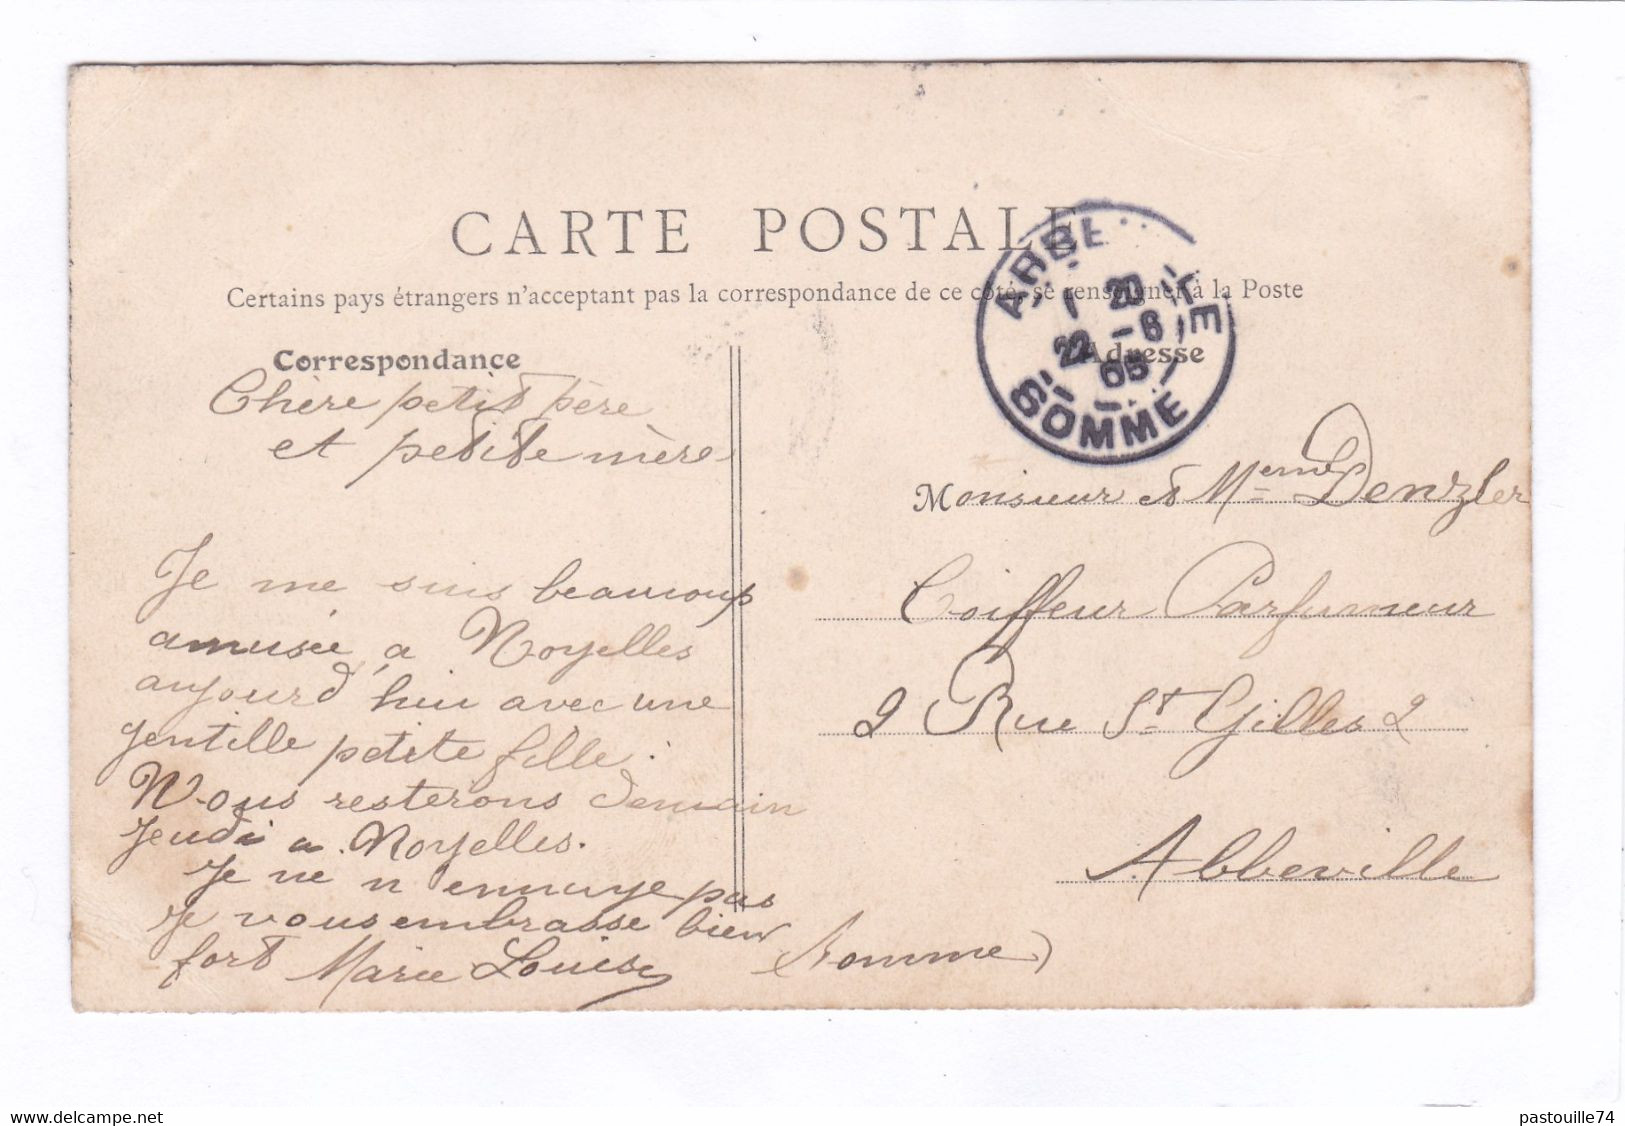 CARTE POSTALE
Certains pays étrangers n'acceptant pas la correspondance de ce côté, se renseigner à la Poste
Correspondance
Adresse
1 20
22 - 6
05
SOMME
Chère petit père
et petite mère
Je me suis beaucoup
amusée à Noyelles
aujourd'hui avec une
gentille petite fille.
Nous resterons demain
jeudi a Noyelles.
Je ne n ennuye pas
je vous embrasse bien
fort Marie Louise
Monsieur et Meme Denzler
Coiffeur Parfumeur
2 Rue St Gilles 2
Abbeville
Somme)
delcampe.net
pastouille74